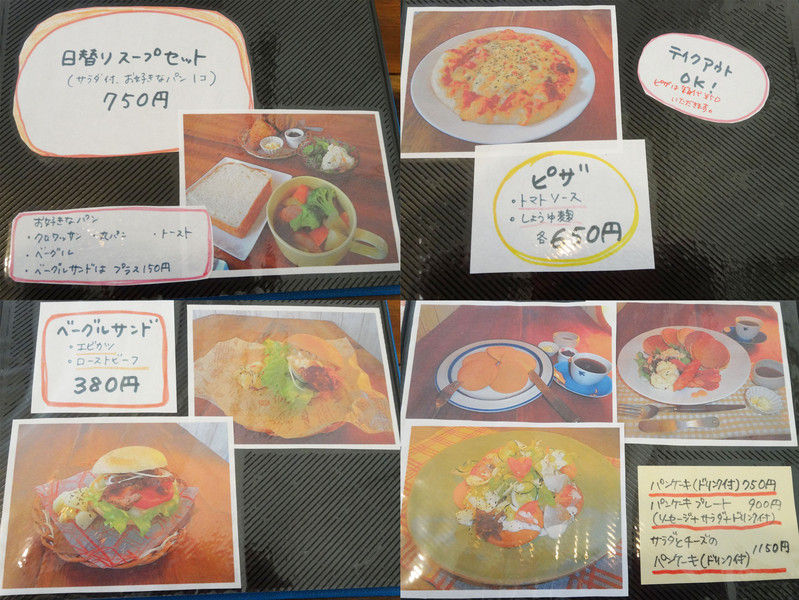 日替りスープセット
(サラダ付、お好きなパン1コ)
750円
お好きなパン
・クロワッサン ・丸パン ・トースト
・ベーグル
・ベーグルサンドは プラス150円
テイクアウト
OK!
ピザは
いただきます。
ピザ
・トマトソース
・しょうゆ麹
各650円
ベーグルサンド
・エビカツ
・ローストビーフ
380円
パンケーキ(ドリンク付)750円
パンケーキプレート 900円
(ソーセージ+サラダ+ドリンク付)
サラダとチーズの
パンケーキ(ドリンク付) 1150円